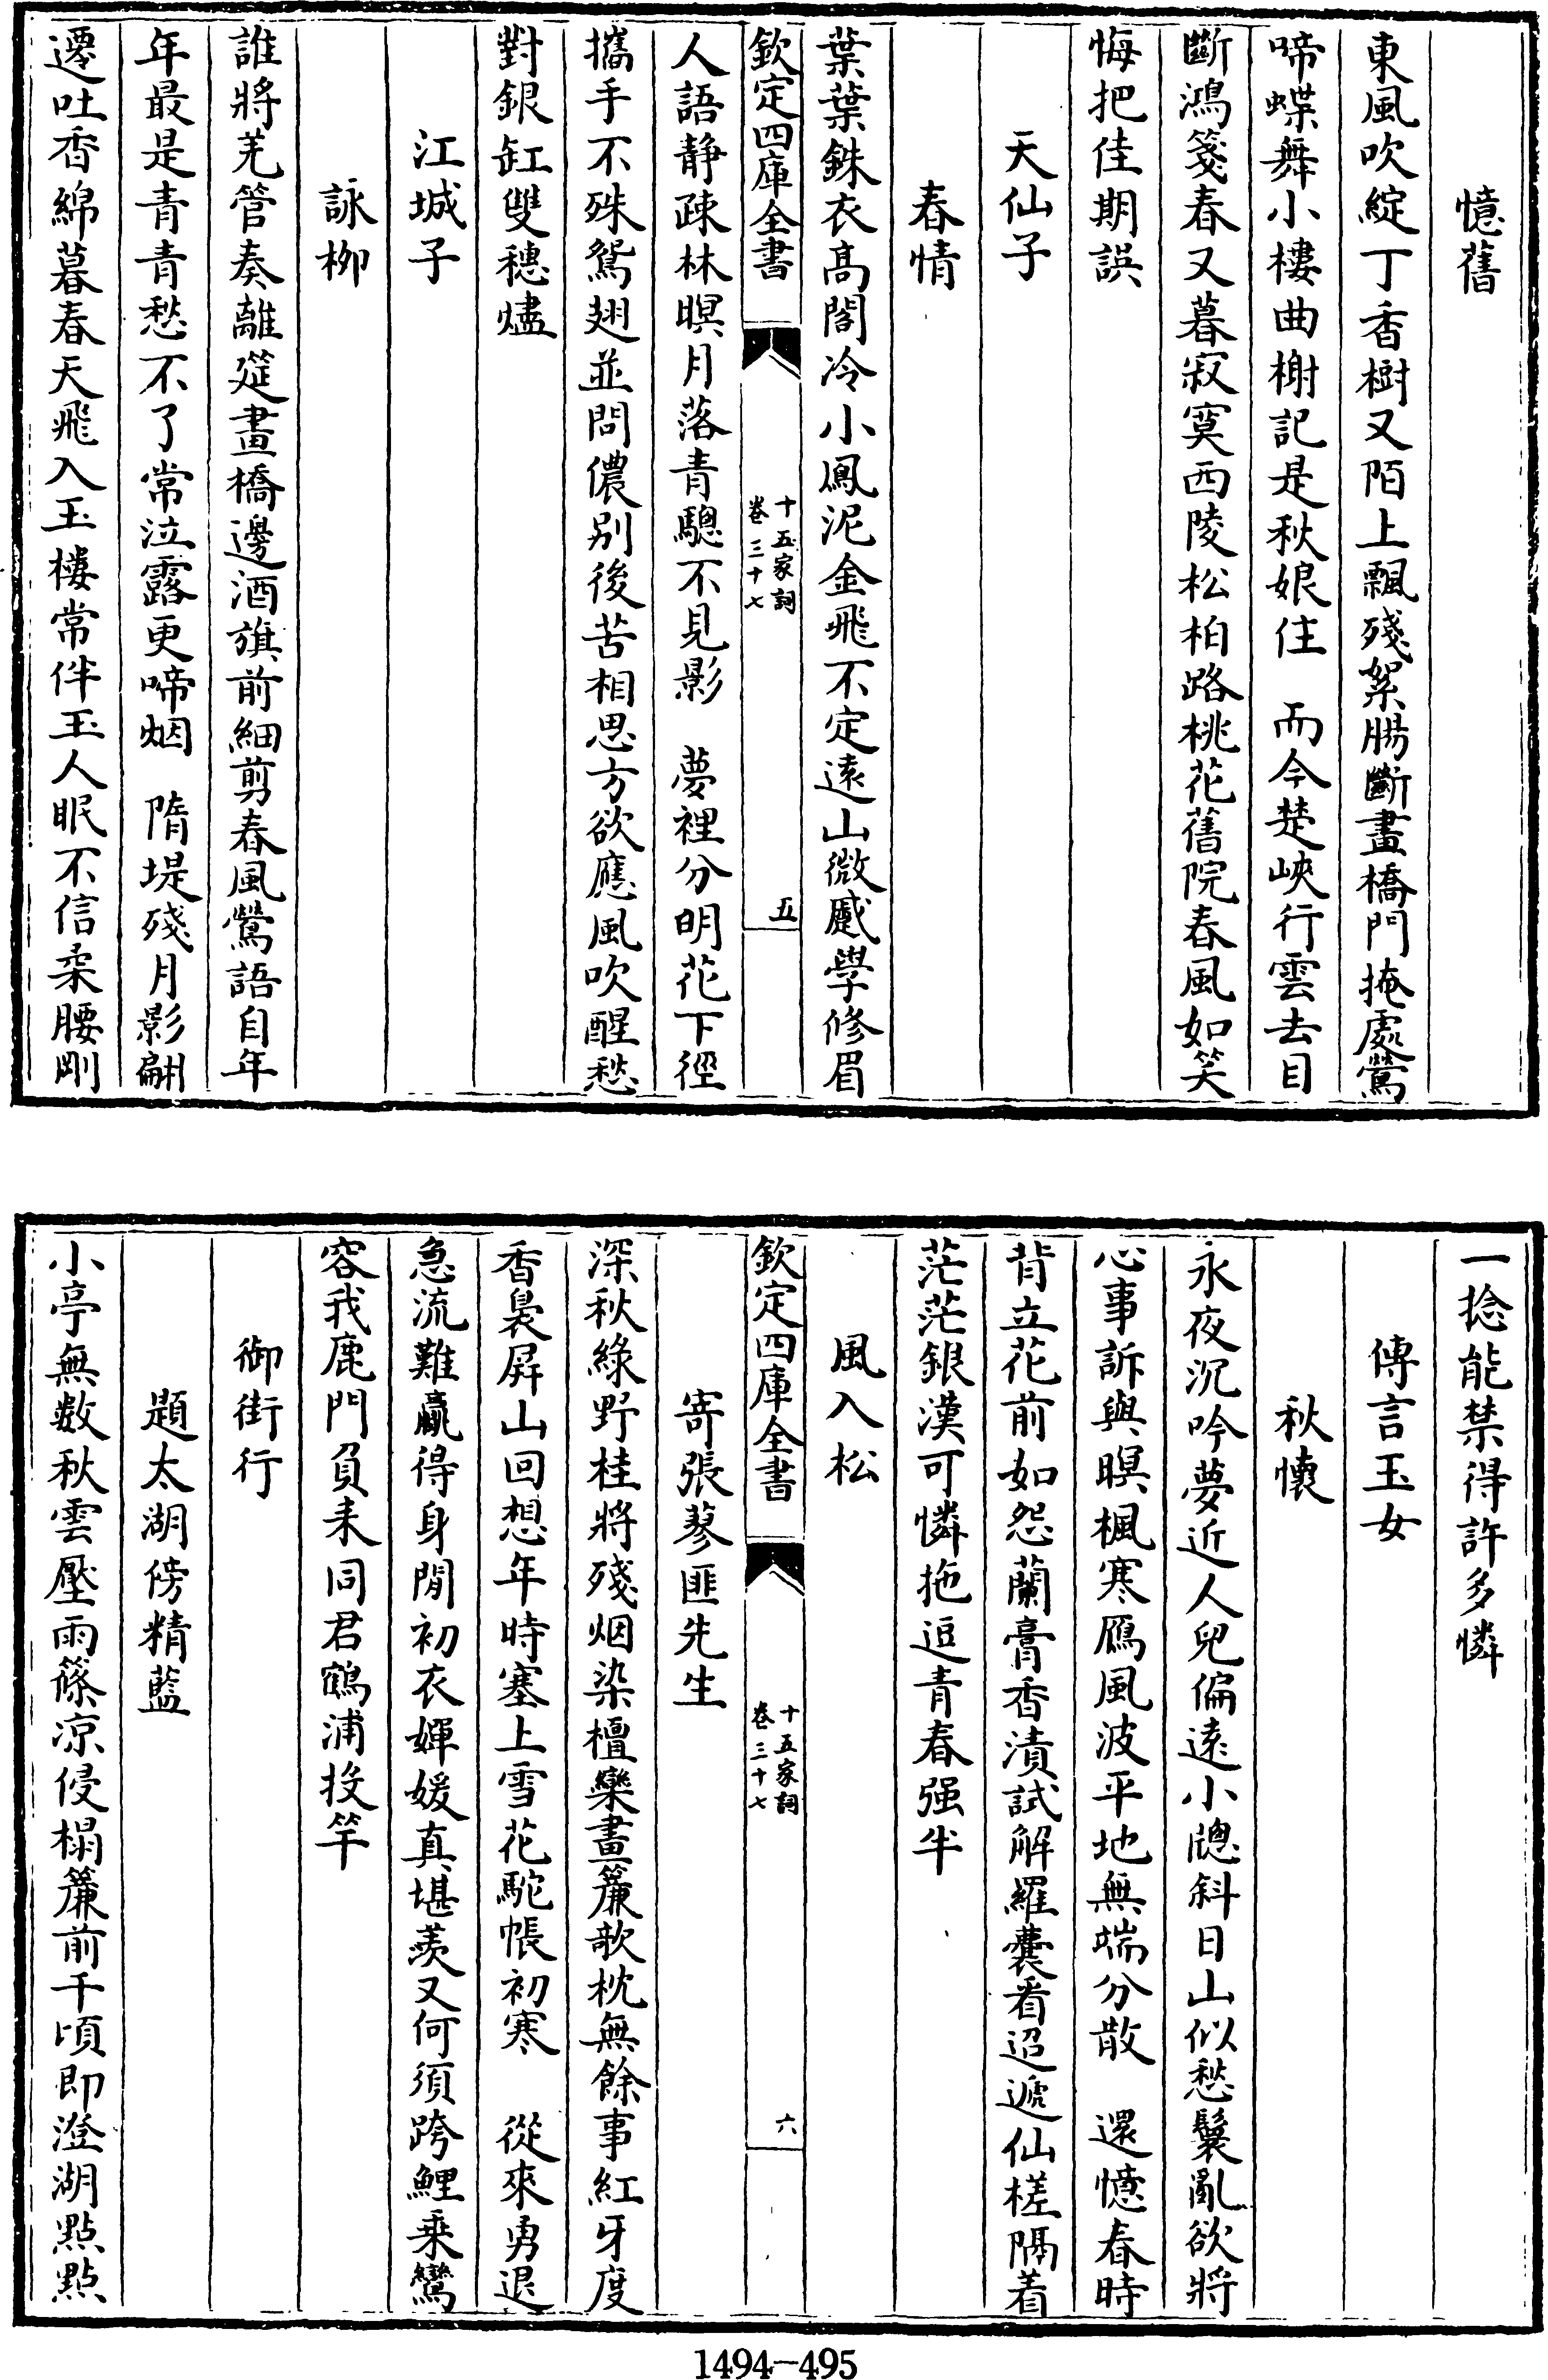 憶舊
東風吹綻丁香樹又陌上飄殘絮腸斷畫橋門掩處鶯
啼蝶舞小樓曲榭記是秋娘住　而今楚峽行雲去目
斷鴻箋春又暮寂寞西陵松柏路桃花舊院春風如笑
悔把佳期誤
天仙子
春情
葉葉銖衣高閣冷小鳳泥金飛不定遠山微蹙學修眉
欽定四庫全書
十五家詞
卷三十七
五
人語静疎林暝月落青驄不見影　夢裡分明花下徑
攜手不殊鴛翅並問儂别後苦相思方欲應風吹醒愁
對銀缸雙穗燼
江城子
詠柳
誰將羌管奏離筵畫橋邊酒旗前細剪春風鶯語自年
年最是青青愁不了常泣露更啼烟　隋堤殘月影翩
遷吐香綿暮春天飛入玉樓常伴玉人眠不信柔腰剛
一捻能禁得許多憐
傳言玉女
秋懷
永夜沉吟夢近人兒偏遠小牕斜日山似愁鬟亂欲將
心事訴與暝楓寒鴈風波平地無端分散　還憶春時
背立花前如怨蘭膏香漬試解羅囊看迢遞仙槎隔着
茫茫銀漢可憐拖逗青春强半
風入松
欽定四庫全書
十五家詞
卷三十七
六
寄張蓼匪先生
深秋綠野桂將殘烟染檀欒畫簾欹枕無餘事紅牙度
香裊屏山回想年時塞上雪花駝帳初寒　從來勇退
急流難贏得身閒初衣嬋媛真堪羨又何須跨鯉乘鸞
容我鹿門負耒同君鶴浦投竿
御街行
題太湖傍精藍
小亭無數秋雲壓雨篠凉侵榻簾前千頃即澄湖點點
1494-495